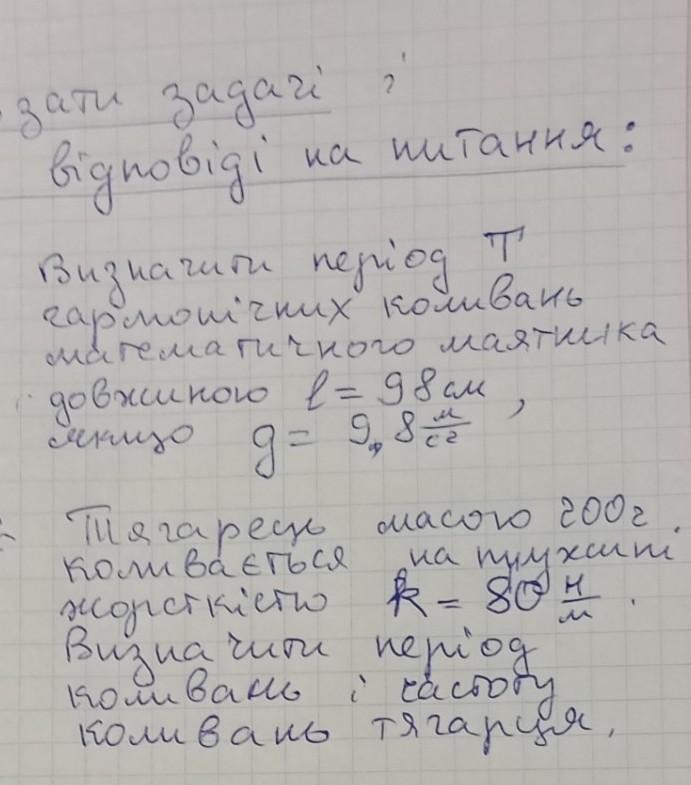 зати задачі і
відповіді на питання:
Визначити період T
гармонічних коливань
математичного маятника
довжиною l = 98 см,
якщо g = 9,8 м/с²
Тягарець масою 200г
коливається на пружині
жорсткістю k = 80 Н/м.
Визначити період
коливань і частоту
коливань тягарця.